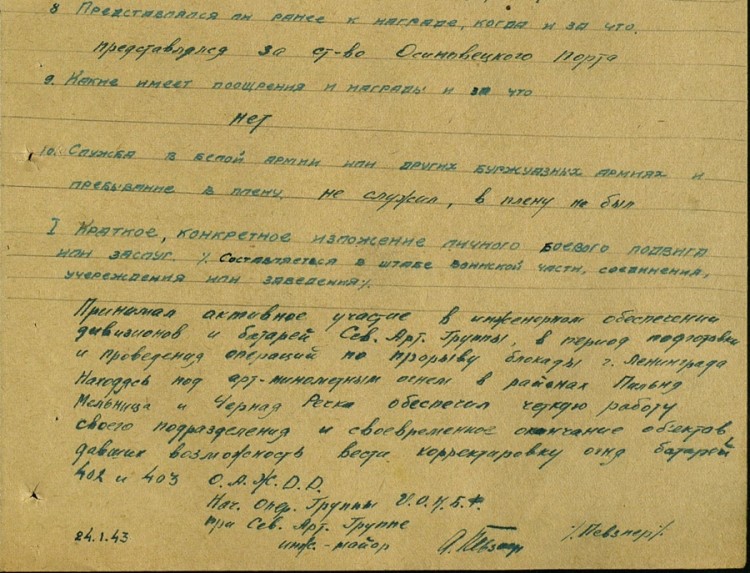 8 Представлялся ли ранее к награде, когда и за что.
представлялся за ст-во Осиновецкого Порта
9. Какие имеет поощрения и награды и за что
нет
10. Служба в белой армии или других буржуазных армиях и
пребывание в плену. не служил, в плену не был
I Краткое, конкретное изложение личного боевого подвига
или заслуг. /. Составляется в штабе воинской части, соединения,
учереждения или заведения/.
Принимал активное участие в инженерном обеспечении
дивизионов и батарей Сев. Арт. Группы, в период подготовки
и проведения операций по прорыву блокады г. Ленинграда
Находясь под арт-минометным огнем в районах Пильня
Мельница и Черная Речка обеспечил четкую работу
своего подразделения и своевременное окончание объектов
давших возможность вести корректировку огня батарей
402 и 403 О.А.Ж.Д.Д.
Нач. Опер. Группы И.О.К.Б.Ф.
при Сев. Арт. Группе
24.1.43 инж.-майор /Певзнер/.